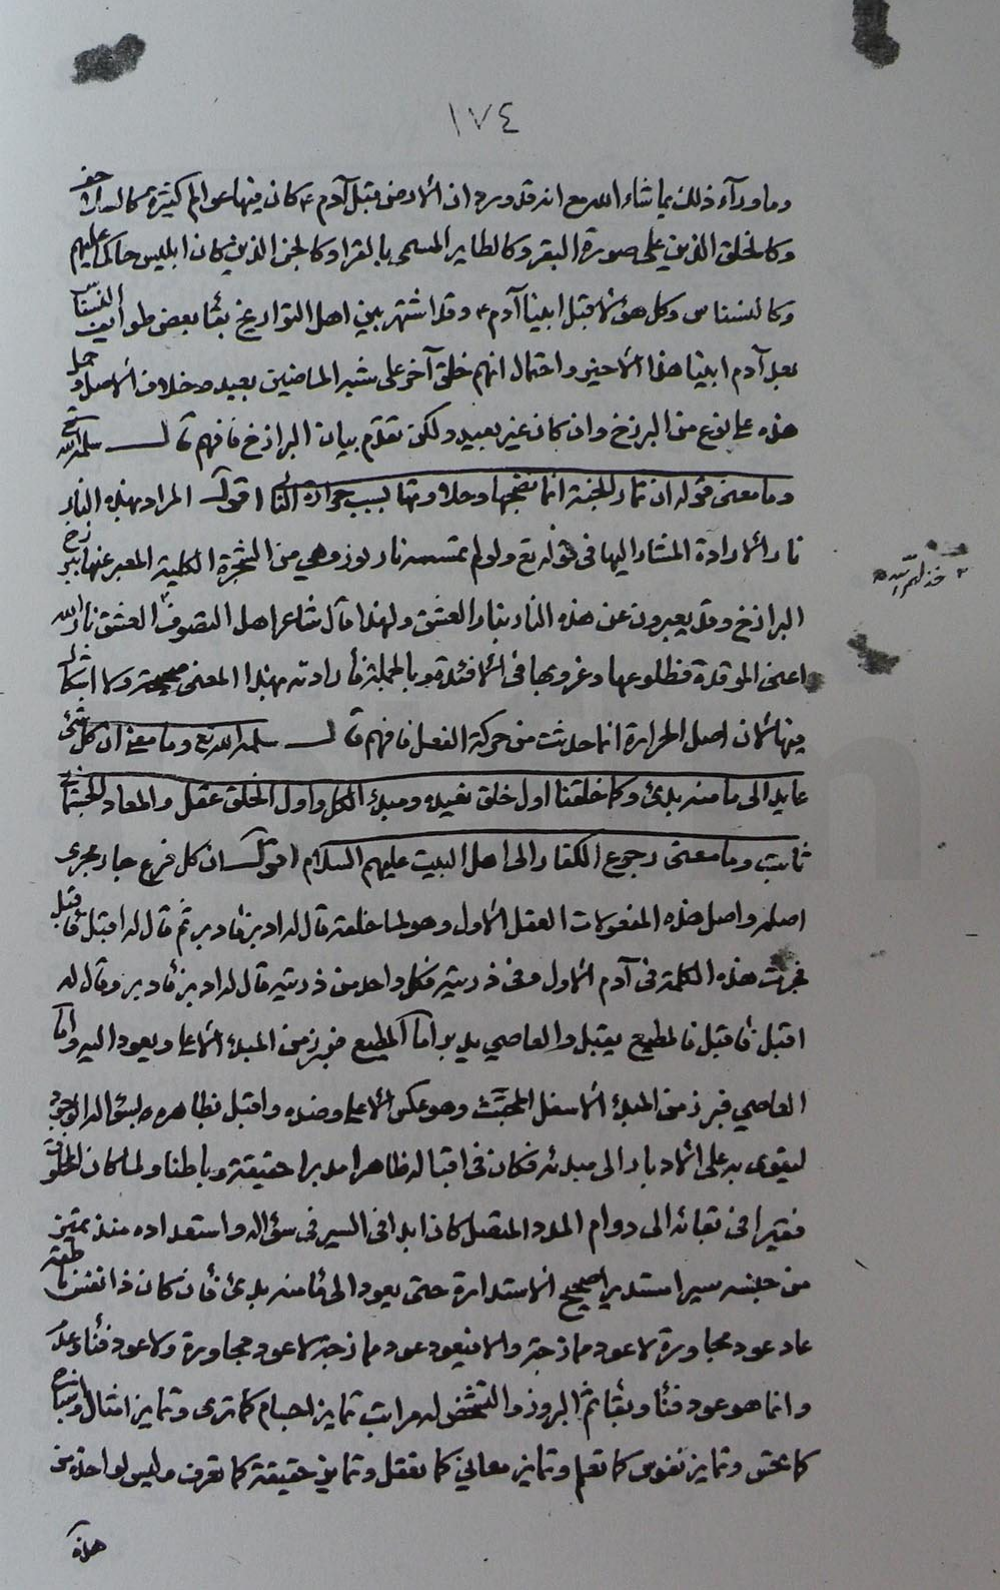 ١٧٤
وما وراء ذلك مما شاء الله مع انه قد ورد ان الارض قبل آدم ع كان فيها عوالم كثيرة
وكالخلق الذين على صورة البقر وكالطاير المسمى بالقرا وكالجن الذين كان ابليس حاكما عليهم
وكالنسناس وكل هؤلاء قبل ابينا آدم ع وقد اشتهر بين اهل التواريخ بقاء بعض طوايف النسناس
بعد آدم ابينا هذا الاخير واحتمال انهم خلق آخر على شبه الماضين بعيد وخلاف الاصل وحمل
هذه على نوع من البرزخ وان كان غير بعيد ولكن تقدم بيان البرازخ فافهم قال سلمه الله تع
وما معنى قوله ان ثمار الجنة انما نضجها وحلاوتها بسبب حرارة النار اقول المراد بهذه النار
نار الارادة المشار اليها في قوله تع ولو لم تمسسه نار نور وهي من الشجرة الكلية المعبر عنها
البرازخ وقد يعبرون عن هذه النار بنار العشق ولهذا قال شاعر اهل التصوف العشق نار الله
خذلهم الله
اعني الموقدة فطلوعها وغروبها في الافئدة وبالجملة فارادته بهذا المعنى صحيحة ولا اشكال
فيها لان اصل الحرارة انما حدثت من حركة الفعل فافهم قال سلمه الله تع وما معنى ان كل شئ
عايد الى ما منه بدئ وكما خلقنا اول خلق نعيده ومبدء الكل واول الخلق عقل والمعاد الجسماني
ثابت وما معنى رجوع الكفار الى اهل البيت عليهم السلام اقول ان كل فرع جار مجرى
اصله واصل هذه المفعولات العقل الاول وهو لما خلقه قال له ادبر فادبر ثم قال له اقبل فاقبل
فجرت هذه الكلمة في آدم الاول وفي ذريته فكل واحد من ذريته قال له ادبر فادبر وقال له
اقبل فاقبل فالمطيع يقبل والعاصي يدبر اما المطيع فبرز من المبدء الاعلى ويعود اليه واما
العاصي فبرز من المبدء الاسفل المجتث وهو عكس الاعلى وضده واقبل بظاهره بسؤاله الوجود
ليقوى به على الادبار الى مبدئه فكان في اقباله ظاهرا مدبرا حقيقة وباطنا ولما كان المخلوق
فقيرا في بقائه الى دوام المدد المتصل كان ابدا في السير في سؤاله واستعداده منذ تميز
من جنسه سيرا مستديرا صحيح الاستدارة حتى يعود الى ما منه بدئ فان كان ذا نفس ناطقة
عاد عود مجاورة لا عود ممازجة والا فيعود عود ممازجة لا عود مجاورة ولا عود فناء وعدم
وانما هو عود فناء وبقاء ثم البروز والتشخص له مراتب تمايز اجسام كما ترى وتمايز امثال واشباح
كما تحس وتمايز نفوس كما تعلم وتمايز معاني كما تعقل وتمايز حقيقة كما تعرف وليس لواحد من
هذه